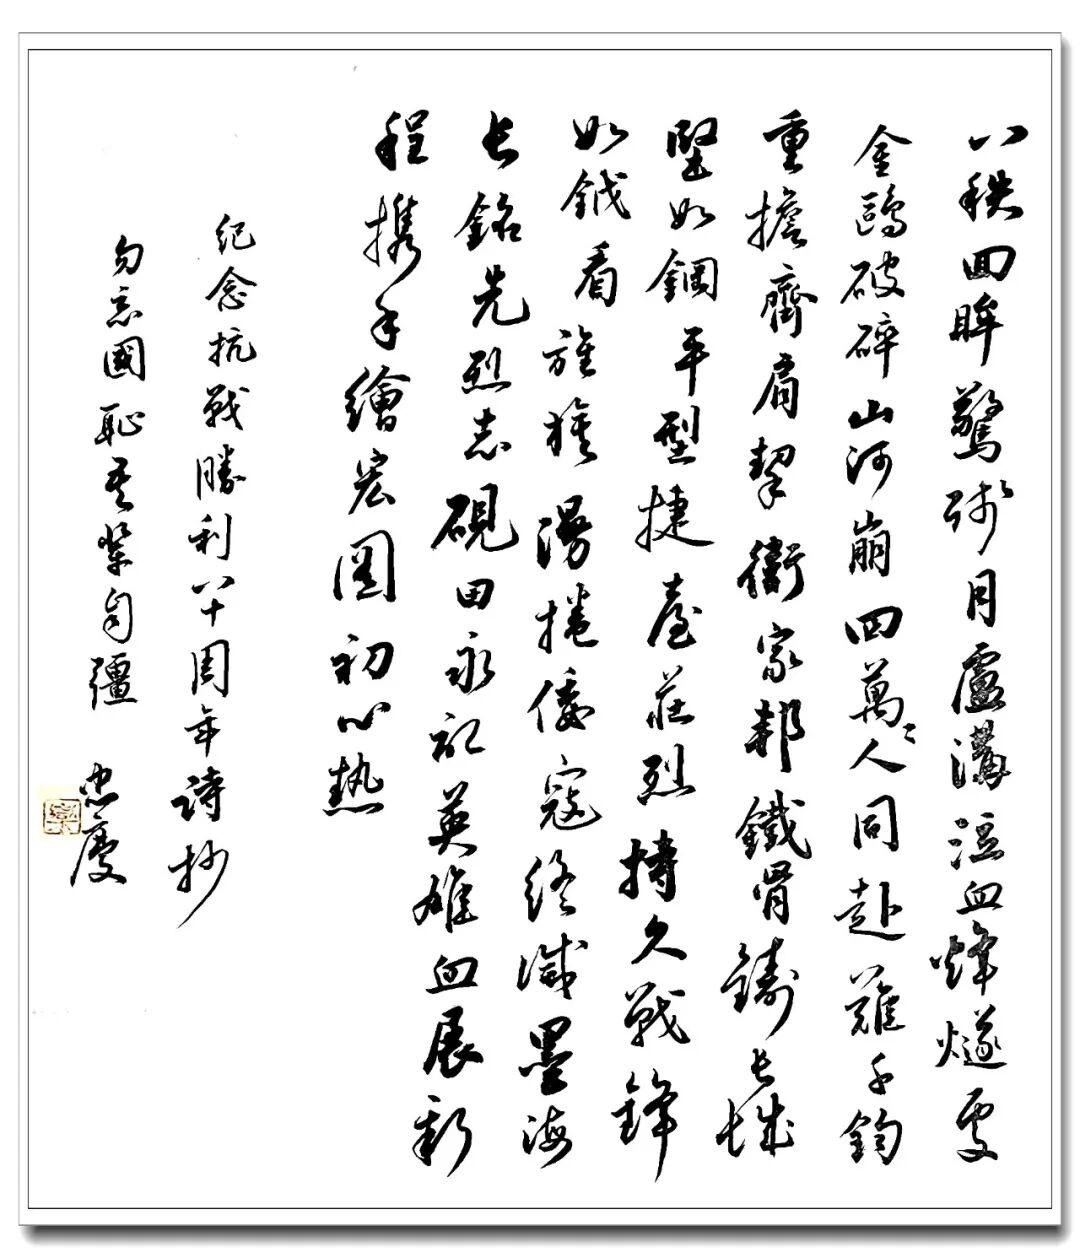 八秩回眸驚殘月盧溝泣血烽燧處
金甌破碎山河崩四萬萬人同赴難千鈞
重擔齊肩挈衛家邦鐵骨鑄長城
堅如鋼平型捷臺莊烈久戰鋒
如鉞看旌旗漫捲倭寇終滅墨海
長銘先烈志硯田永記英雄血展新
程攜手繪宏圖初心熱
紀念抗戰勝利八十周年詩抄
勿忘國恥吾輩自彊 忠慶